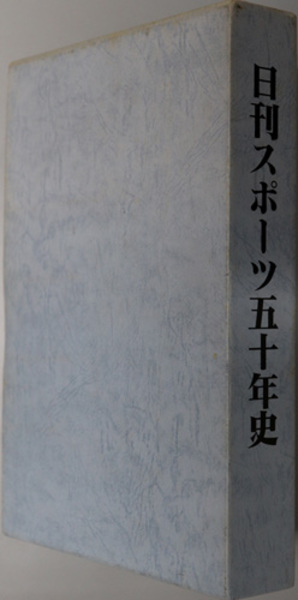 日刊スポーツ五十年史